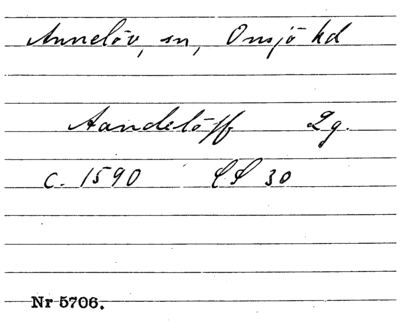 Annelöv, sn, Onsjö hd
Aandelöff 2 g.
c. 1590 LL 30
Nr 5706.